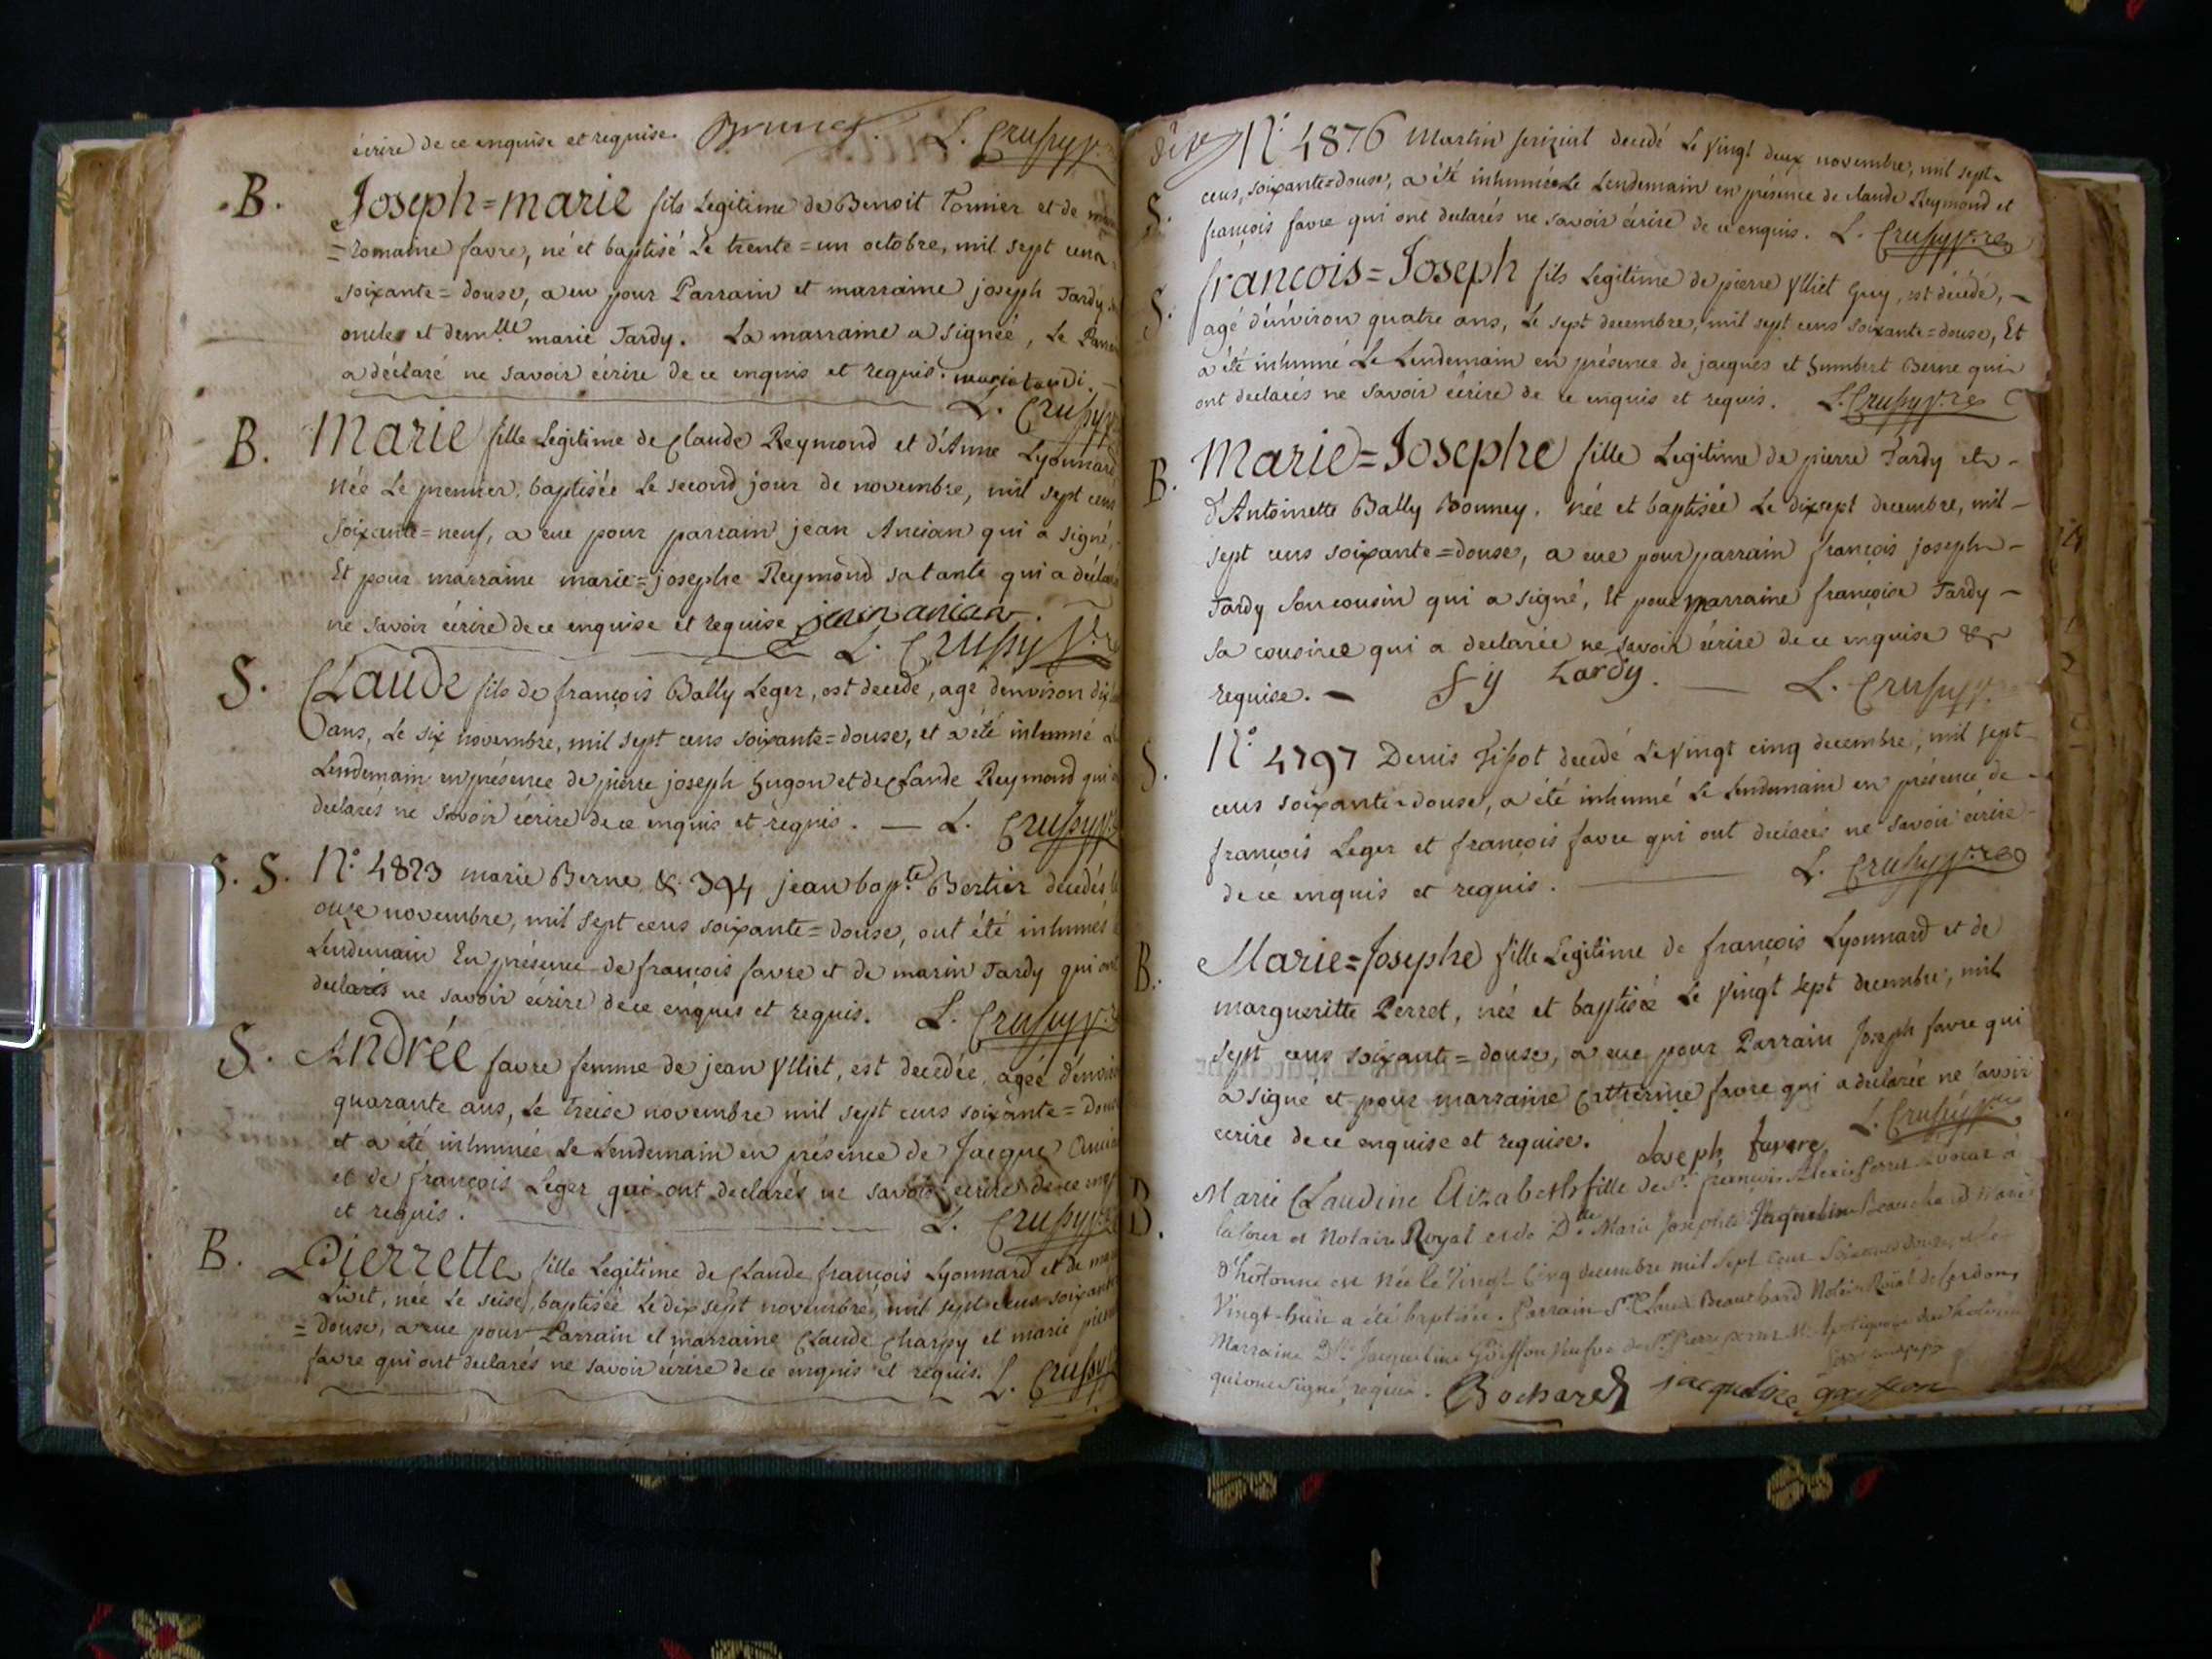 écrire de ce enquise et requise. L. Crussy
B. Joseph=marie fils Legitime de Benoit Tornier et de
=Romaine favre, né et baptisé Le trente=un octobre, mil sept cens
soixante=douse, a eu pour Parrain et marraine joseph Tardy
oncle et dem.lle marie Tardy. La marraine a signée, Le
a déclaré ne savoir écrire de ce enquis et requis. marie tardi.
L. Crussy
B. Marie fille Legitime de Claude Reymond et d'Anne Lyonnard
née Le premier, baptisée Le second jour de novembre, mil sept cens
soixante=neuf, a eue pour parrain jean Ancian qui a signé,
Et pour marraine marie=josephe Reymond sa tante qui a
ne savoir écrire de ce enquise et requise jean ancian.
L. Crussy
S. Claude fils de françois Bally Leger, est decede, age denviron
ans, Le six novembre, mil sept cens soixante=douse, et a été inhumé
Lendemain en présence de pierre joseph hugon et de Claude Reymond qui
declarés ne savoir écrire de ce enquis et requis. — L. Crussy
S. S. N.o 4823 marie Berne & 394 jean bap.te Bertier decedés
onze novembre, mil sept cens soixante=douse, ont été inhumés
Lendemain En présence de françois favre et de marin Tardy qui ont
declarés ne savoir écrire de ce enquis et requis. L. Crussy
S. Andrée favre femme de jean ylliet, est decedée, agée
quarante ans, Le treise novembre mil sept cens soixante=
et a été inhumée Le Lendemain en présence de Jacque
et de françois Leger qui ont declarés ne savoir écrire de ce
et requis. L. Crussy
B. Pierrette fille Legitime de Claude françois Lyonnard et de
née Le seise, baptisée Le dix sept novembre, mil sept cens soixante
=douse, a eue pour Parrain et marraine Claude Charpy et marie
favre qui ont declarés ne savoir écrire de ce enquis et requis. L. Crussy
N.o 4876 Martin decedé Le vingt deux novembre, mil sept
S. cens, soixante=douse, a été inhumé Le Lendemain en présence de claude Reymond et
françois favre qui ont declarés ne savoir écrire de ce enquis. L. Crussy
S. francois=Joseph fils Legitime de pierre ylliet Guy, est décédé,
agé d'environ quatre ans, Le sept decembre, mil sept cens soixante=douse, Et
a été inhumé Le Lendemain en présence de jacques et humbert Berne qui
ont declarés ne savoir écrire de ce enquis et requis. L. Crussy
B. Marie=Josephe fille Legitime de pierre Tardy et
d'Antoinette Bally Bonney, née et baptisée Le dixsept decembre, mil
sept cens soixante=douse, a eue pour parrain françois joseph
Tardy son cousin qui a signé, Et pour marraine françoise Tardy
sa cousine qui a declarée ne savoir écrire de ce enquise &
requise. — f j tardy. — L. Crussy
S. N.o 4797 Denis Tissot decedé Le vingt cinq decembre, mil sept
cens soixante=douse, a été inhumé Le Lendemain en présence de
françois Leger et françois favre qui ont declarés ne savoir écrire
de ce enquis et requis. L. Crussy
B. Marie=Josephe fille Legitime de françois Lyonnard et de
margueritte Perret, née et baptisée Le vingt sept decembre, mil
sept cens soixante=douse, a eue pour Parrain Joseph favre qui
a signé et pour marraine Catherine favre qui a declarée ne savoir
écrire de ce enquise et requise. Joseph favre L. Crussy
B. Marie Claudine Elizabeth fille de S.r françois Alexis avocat a
la Cour et Notaire Royal et de D.lle Marie Josephte Jaqueline Beauchard
d'hotonne est Née le Vingt Cinq decembre mil Sept Cent Soixante douze, et le
Vingt-huit a été baptisée. Parrain S.r Claude Beauchard Notaire Roial de Cerdon,
Marraine D.lle Jacqueline Goiffon veufve de S.r Pierre
qui ont signé requis. Bochard jacqueline goiffon